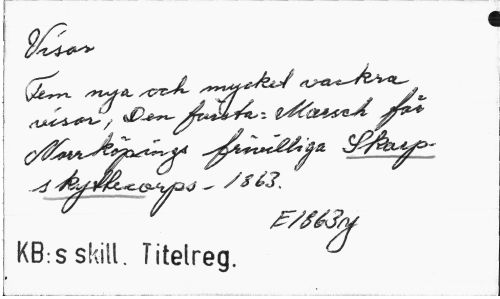 Visor
Fem nya och mycket vackra
visor, Den första: Marsch för
Norrköpings frivilliga Skarp-
skyttecorps - 1863.
E1863y
KB:s skill. Titelreg.